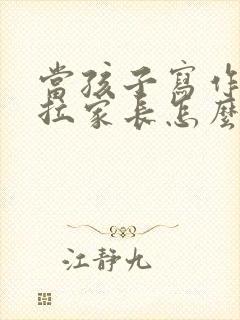 當孩子寫作
拉家長怎麼
江静九